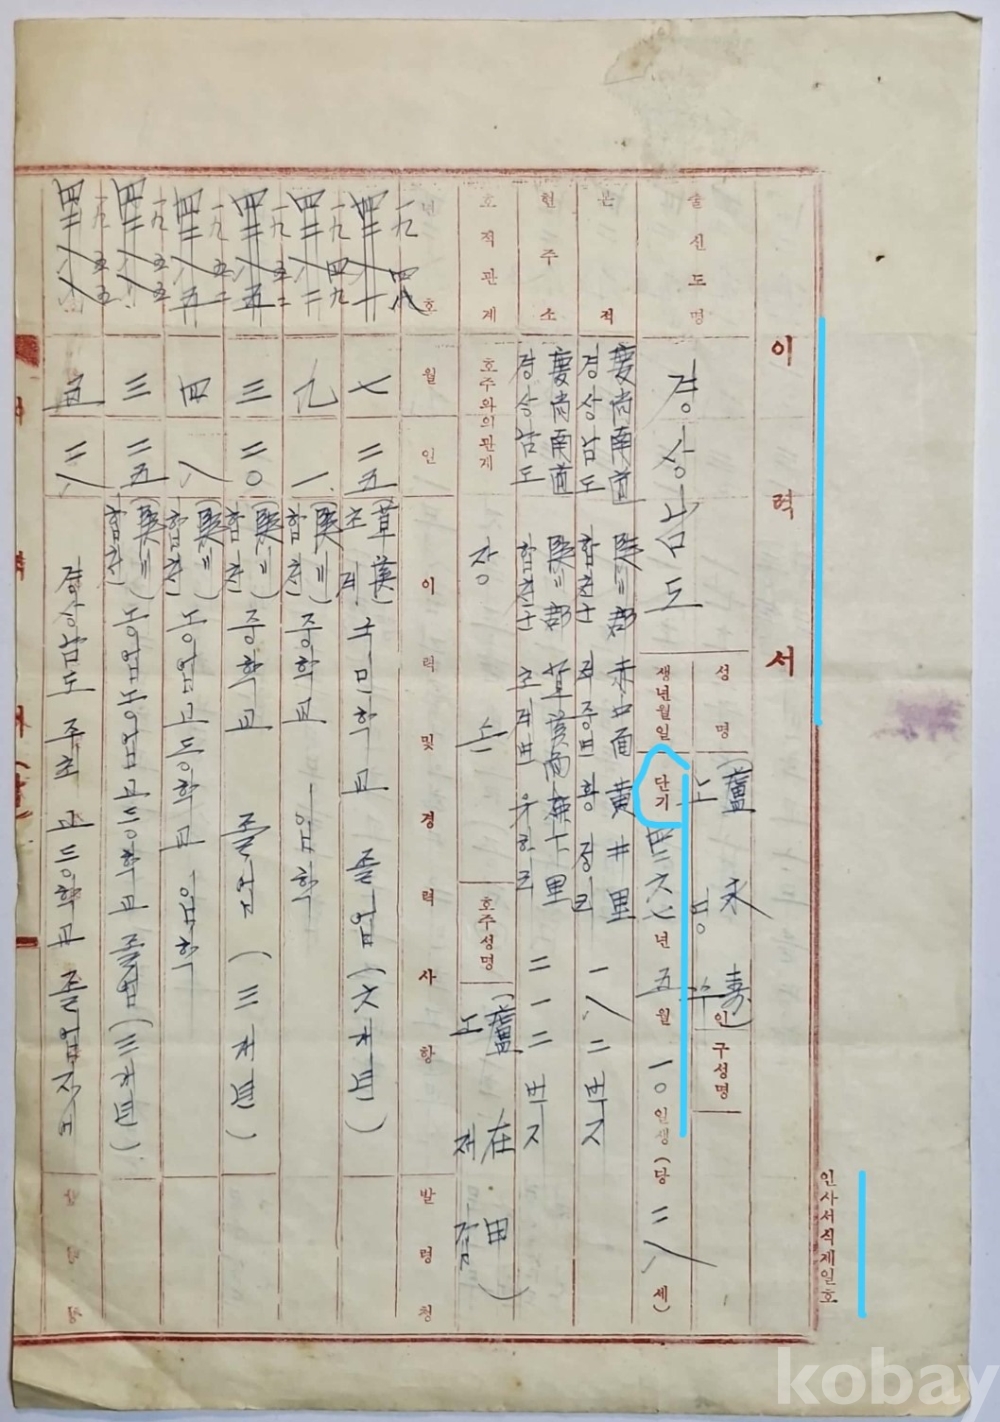 인사서식제일호
이력서
출신도명
경상남도
성명
노영수
(盧永壽)
인
구성명
생년월일
단기 四二六七년 五월 一〇일생 (당 二八세)
본적
慶尚南道 陜川郡 赤中面 黄井里
경상남도 합천군 적중면 황정리 一八二번지
현주소
慶尚南道 陜川郡 草溪面
경상남도 합천군 초계면 유하리 二一二번지
호적관계
호주와의관계
장손
호주성명
노재갑
(盧在甲)
년호
월
일
이력 및 경력사항
발령청
一九四八 七 二五 초계(草溪) 국민학교 졸업 (六개년)
一九四九 九 一 합천(陜川) 중학교 입학
一九五二 三 二〇 합천(陜川) 중학교 졸업 (三개년)
一九五二 四 八 합천(陜川) 농업고등학교 입학
一九五五 三 二五 합천(陜川) 농업고등학교 졸업 (三개년)
一九五五 五 二八 경상남도
kobay